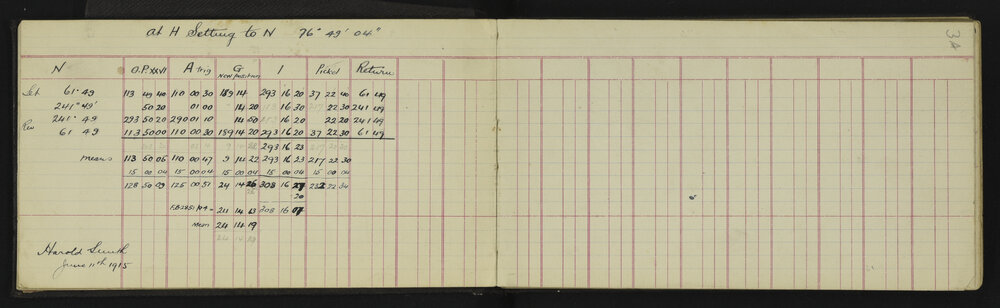 At H Setting to N 76° 49' 04"
34
N O.P. XXVI A Trig G I Picket Return
New position
Set 61° 49 113 49 40 110 00 30 189 14 293 16 20 37 22 40 61 49
241° 49' 50 20 01 00 14 20 16 30 22 30 241 49
241° 49 293 50 20 290 01 10 14 50 16 20 22 20 241 49
Rev 61 49 113 50 00 110 00 30 189 14 20 293 16 20 37 22 30 61 49
293 16 23
means 113 50 05 110 00 47 9 14 22 293 16 23 217 22 30
15 00 04 15 00 04 15 00 04 15 00 04 15 00 04
128 50 09 125 00 51 24 14 26 308 16 27 232 22 34
20
24 14 13 308 16 07
mean 24 14 19
Harold Smith
June 11th 1915